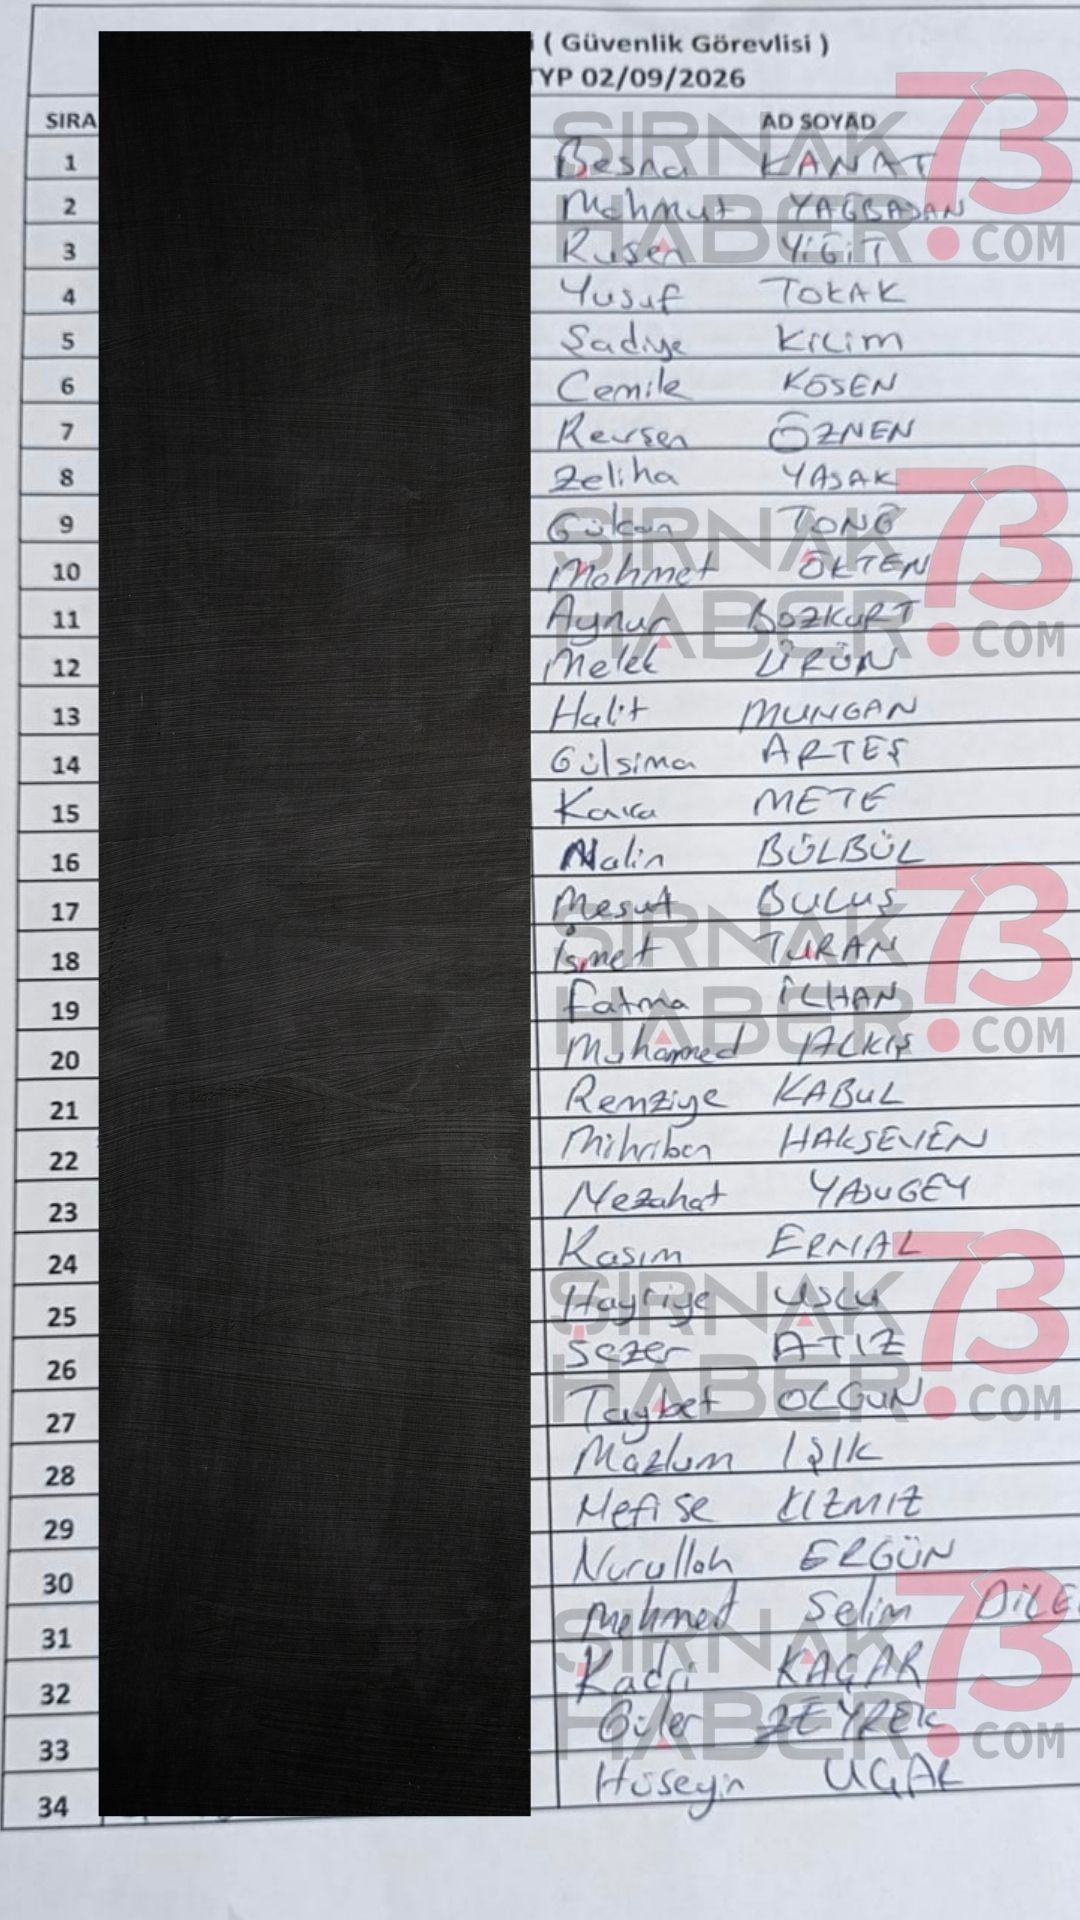 ( Güvenlik Görevlisi )
TYP 02/09/2026
SIRA AD SOYAD
1 Besna KANAT
2 Mahmut YAĞBASAN
3 Ruşen YİĞİT
4 Yusuf TOKAK
5 Şadiye KİLİM
6 Cemile KÖSEN
7 Revşen ÖZNEN
8 Zeliha YAŞAK
9 Gülcan TONĞ
10 Mehmet ÖKTEN
11 Aynur BOZKURT
12 Melek ÜRÜN
13 Halit MUNGAN
14 Gülsima ARTEŞ
15 METE
16 Nalin BÜLBÜL
17 Mesut BULUŞ
18 İsmet TURAN
19 Fatma İLHAN
20 Muhammed ALKIŞ
21 Remziye KABUL
22 Mihriban HAKSEVEN
23 Nezahat
24 Kasım ERNAL
25 Hayriye USLU
26 Sezer ATIZ
27 Taybet OLGUN
28 Mazlum IŞIK
29 Nefise KIZMIZ
30 Nurullah ERGÜN
31 Mehmed Selim DİLE
32 Kadri KAÇAR
33 Güler ZEYREK
34 Hüseyin UÇAR
ŞIRNAK
HABER
73
.COM
ŞIRNAK
HABER
73
.COM
ŞIRNAK
HABER
73
.COM
ŞIRNAK
HABER
73
.COM
ŞIRNAK
HABER
73
.COM